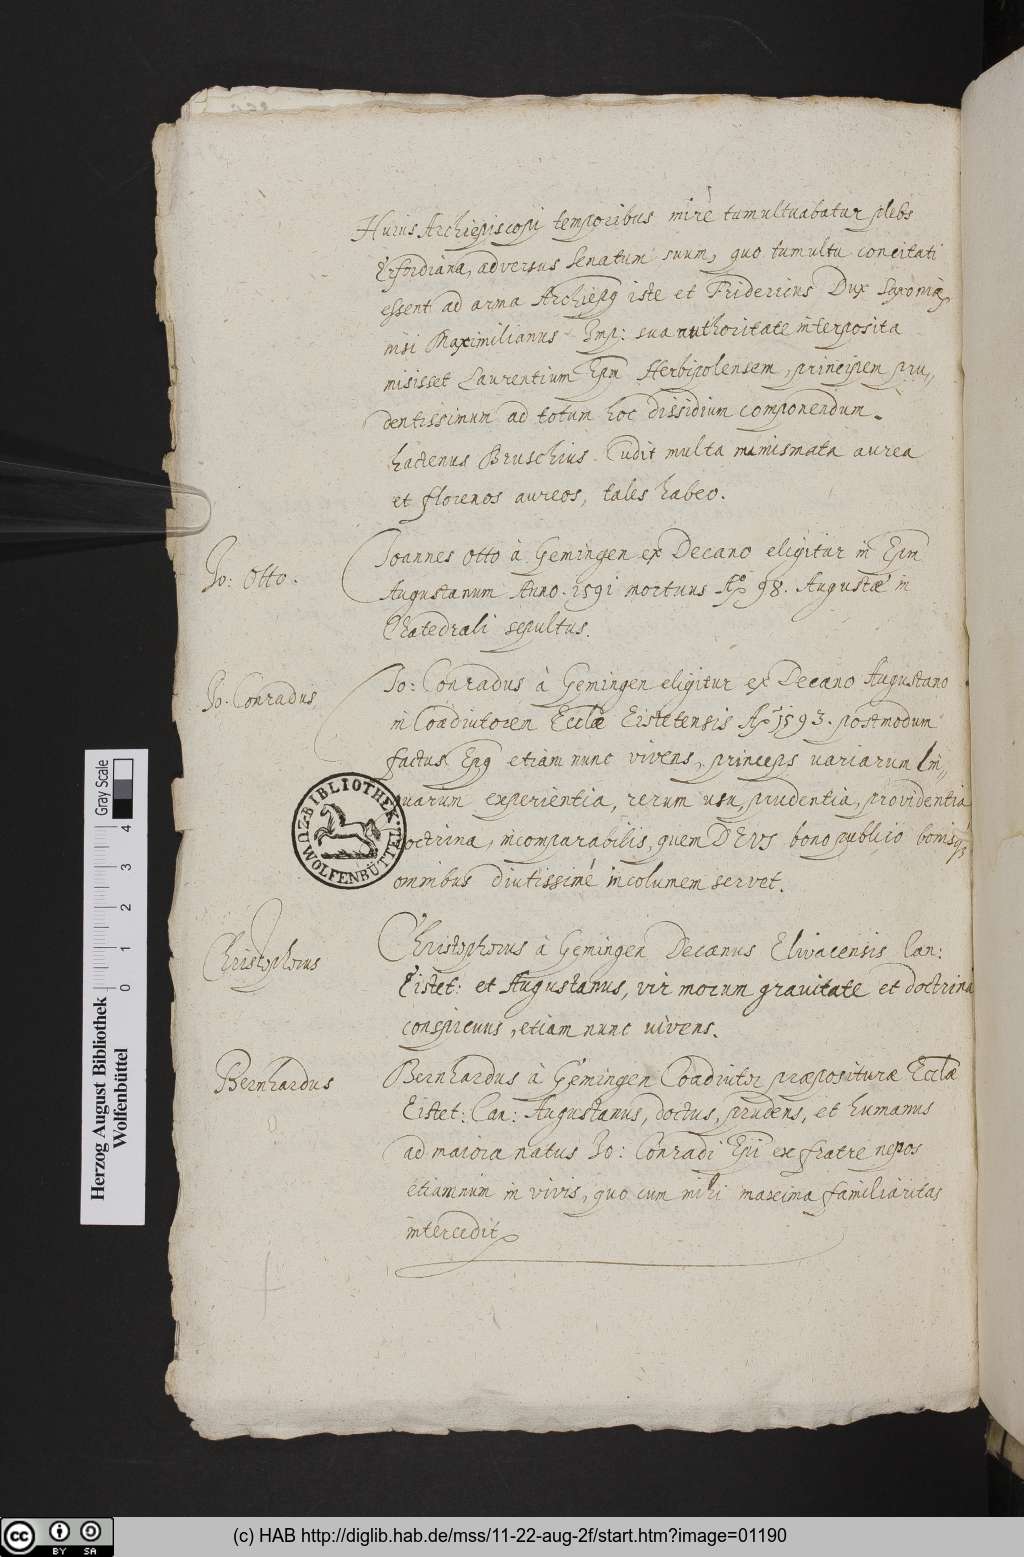 Huius Archiepiscopi temporibus mirè tumultuabatur plebs
Erfordiana, adversus Senatum suum, quo tumultu concitati
essent ad arma Archiepg iste et Fridericus Dux Saxoniæ
nisi Maximilianus Imp: sua authoritate interposita
misisset Laurentium Epm Herbipolensem, principem pru„
dentissimum ad totum hoc dissidium componendum.
hactenus Bruschius. Cudit multa numismata aurea
et florenos aureos, tales habeo.
Jo: Otto.
Joannes Otto à Gemingen ex Decano eligitur in Epm
Augustanum Anno. 1591 mortuus Aº 98. Augustæ in
Chatedrali sepultus.
Jo. Conradus
Jo: Conradus à Gemingen eligitur ex Decano Augustano
in Coadiutorem Ecclæ Eistetensis Aº 1593. postmodum
factus Epg etiam nunc vivens, princeps variarum lin„
guarum experientia, rerum usu, prudentia, providentia
doctrina, incomparabilis, quem DEVS bono publico bonisqʒ
omnibus diutissimé incolumem servet.
Christophorus
Christophorus à Gemingen Decanus Elivacensis Can:
Eistet: et Augustanus, vir morum gravitate et doctrina
conspicuus, etiam nunc vivens.
Bernhardus
Bernhardus à Gemingen Coadiutor præpositura Ecclæ
Eistet: Can: Augustanus, doctus, prudens, et humanus
ad maiora natus Jo: Conradi Epi ex fratre nepos
etiamnum in vivis, quo cum mihi maxima familiaritas
intercedit
BIBLIOTHEK ZU WOLFENBÜTTEL
Herzog August Bibliothek
Wolfenbüttel
Gray Scale
0 1 2 3 4
cc BY SA
(c) HAB http://diglib.hab.de/mss/11-22-aug-2f/start.htm?image=01190